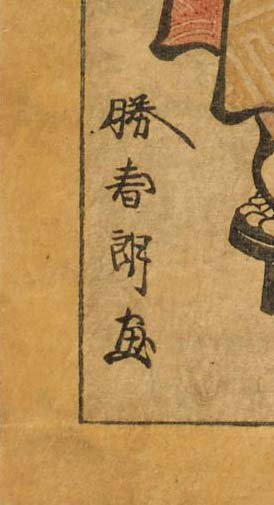 勝春朗画